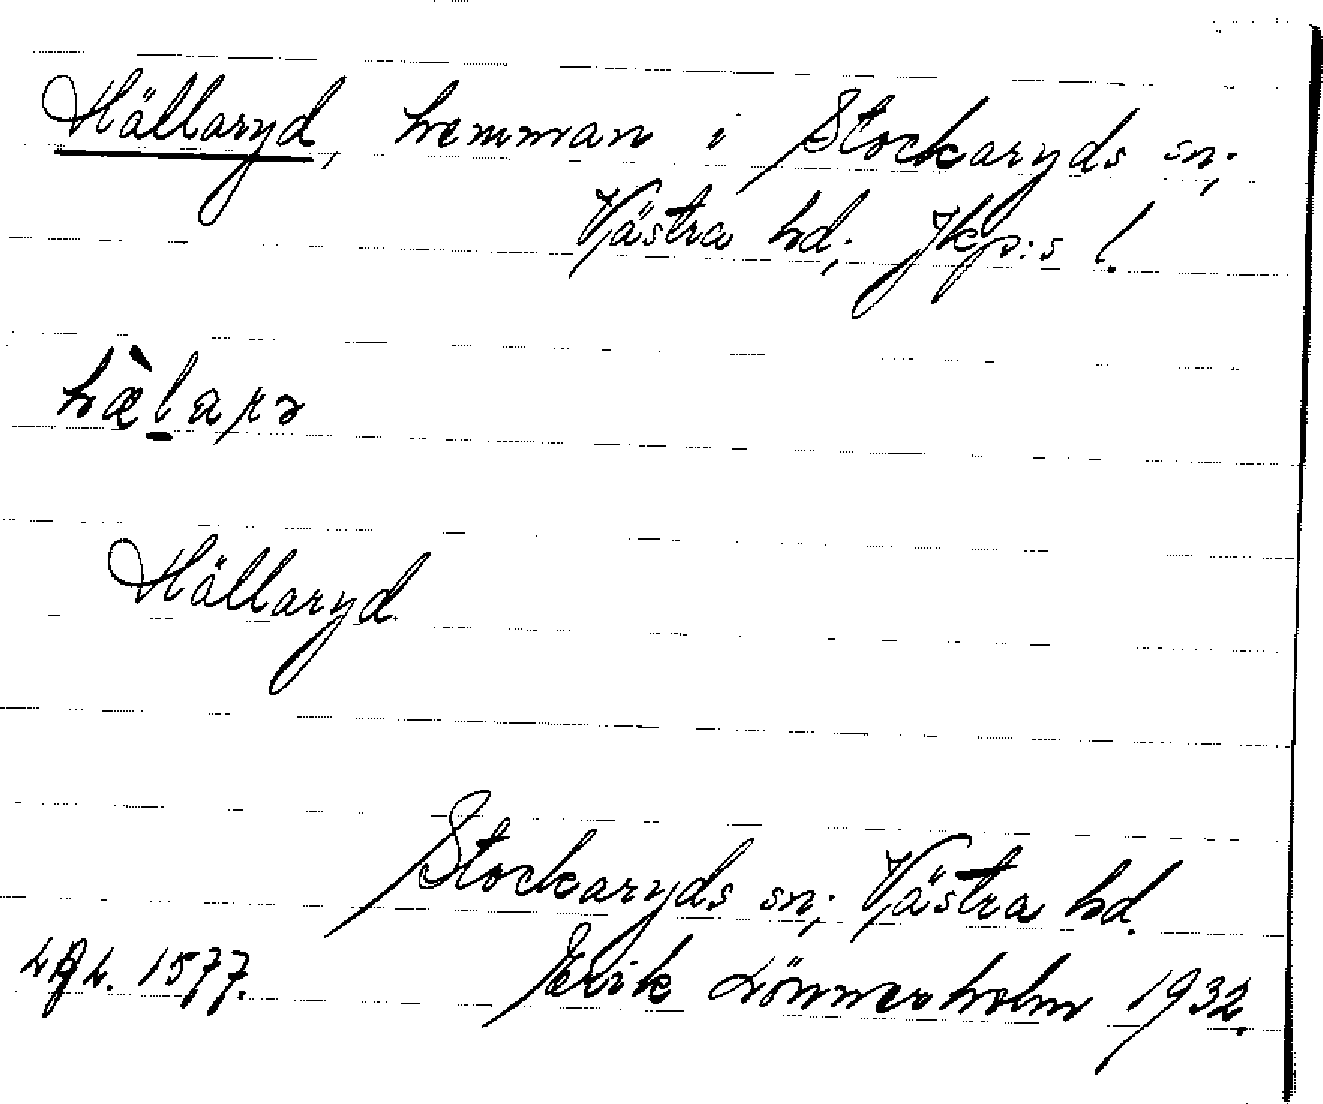 Hällaryd, hemman i Stockaryds sn;
Västra hd; Jkp:s l.
hæ̀l̠arə
Hällaryd.
Stockaryds sn; Västra hd.
1577.
Erik Lönnerholm 1932.